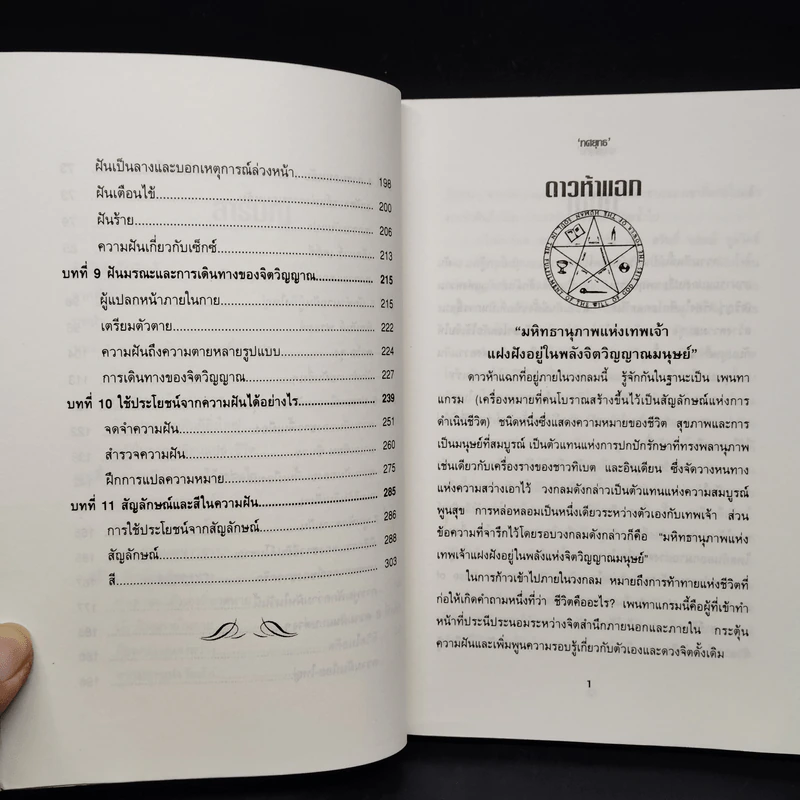 ฝันเป็นลางและบอกเหตุการณ์ล่วงหน้า 198
ฝันเตือนไข้ 200
ฝันร้าย 206
ความฝันเกี่ยวกับเซ็กซ์ 213
บทที่ 9 ฝันมรณะและการเดินทางของจิตวิญญาณ 215
ผู้แปลกหน้าภายในกาย 215
เตรียมตัวตาย 222
ความฝันถึงความตายหลายรูปแบบ 224
การเดินทางของจิตวิญญาณ 227
บทที่ 10 ใช้ประโยชน์จากความฝันได้อย่างไร 239
จดจำความฝัน 251
สำรวจความฝัน 260
ฝึกการแปลความหมาย 275
บทที่ 11 สัญลักษณ์และสีในความฝัน 285
การใช้ประโยชน์จากสัญลักษณ์ 286
สัญลักษณ์ 288
สี 303
'ทศยุทธ'
ดาวห้าแฉก
"มหิทธานุภาพแห่งเทพเจ้า
แฝงฝังอยู่ในพลังจิตวิญญาณมนุษย์"
ดาวห้าแฉกที่อยู่ภายในวงกลมนี้ รู้จักกันในฐานะเป็น เพนทา
แกรม (เครื่องหมายที่คนโบราณสร้างขึ้นไว้เป็นสัญลักษณ์แห่งการ
ดำเนินชีวิต) ชนิดหนึ่งซึ่งแสดงความหมายของชีวิต สุขภาพและการ
เป็นมนุษย์ที่สมบูรณ์ เป็นตัวแทนแห่งการปกปักรักษาที่ทรงพลานุภาพ
เช่นเดียวกับเครื่องรางของชาวทิเบต และอินเดียน ซึ่งจัดวางหนทาง
แห่งความสว่างเอาไว้ วงกลมดังกล่าวเป็นตัวแทนแห่งความสมบูรณ์
พูนสุข การหล่อหลอมเป็นหนึ่งเดียวระหว่างตัวเองกับเทพเจ้า ส่วน
ข้อความที่จารึกไว้โดยรอบวงกลมดังกล่าวก็คือ "มหิทธานุภาพแห่ง
เทพเจ้าแฝงฝังอยู่ในพลังแห่งจิตวิญญาณมนุษย์"
ในการก้าวเข้าไปภายในวงกลม หมายถึงการท้าทายแห่งชีวิตที่
ก่อให้เกิดคำถามหนึ่งที่ว่า ชีวิตคืออะไร? เพนทาแกรมนี้คือผู้ที่เข้าทำ
หน้าที่ประนีประนอมระหว่างจิตสำนึกภายนอกและภายใน กระตุ้น
ความฝันและเพิ่มพูนความรอบรู้เกี่ยวกับตัวเองและดวงจิตดั้งเดิม
1